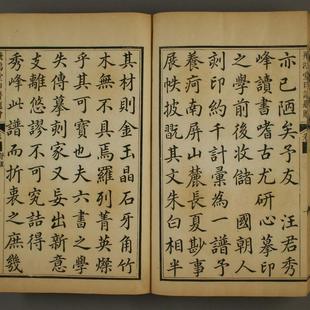 亦已陋矣予友 汪君秀
峰讀書嗜古尤研心摹印
之學前後收儲 國朝人
刻印計彙為一譜予
疴南屏山麓長夏尠事
展帙披其文朱白相半
其材則金玉晶石牙角竹
木無不具羅列菁英燦
乎其可寶也夫六書之學
失傳摹刻家又妄出新意
支離悠謬不可究詰得
秀峰此譜而折衷之庶幾